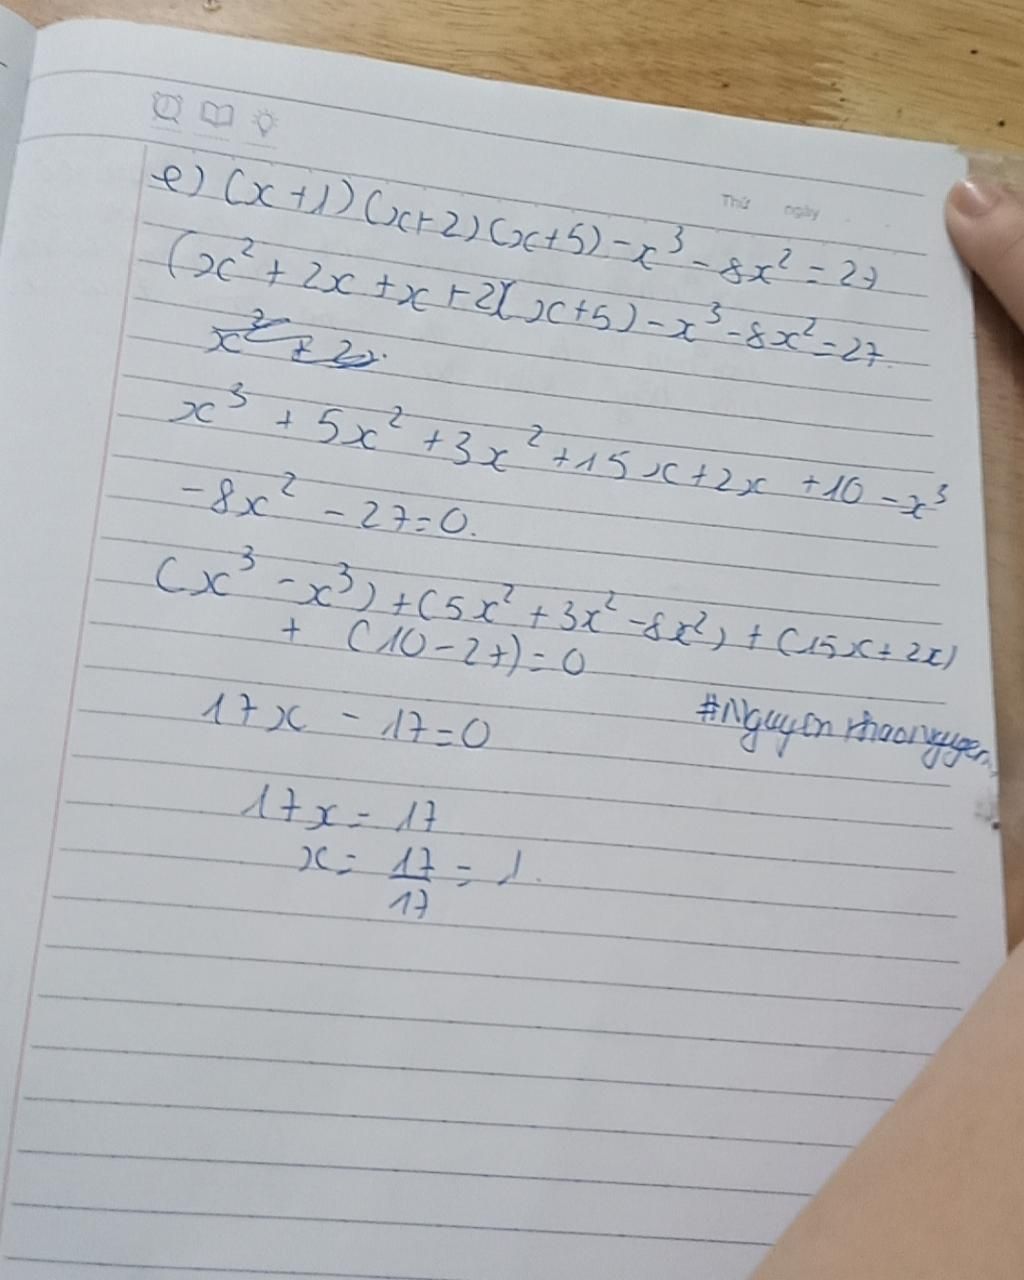 Thứ ngày
e) (x+1)(x+2)(x+5) - x³ - 8x² = 27
(x² + 2x + x + 2)(x+5) - x³ - 8x² = 27.
x³ + 5x² + 3x² + 15x + 2x + 10 - x³
- 8x² - 27 = 0.
(x³ - x³) + (5x² + 3x² - 8x²) + (15x + 2x)
+ (10 - 27) = 0
17x - 17 = 0
#Nguyen
17x = 17
x = 17/17 = 1.